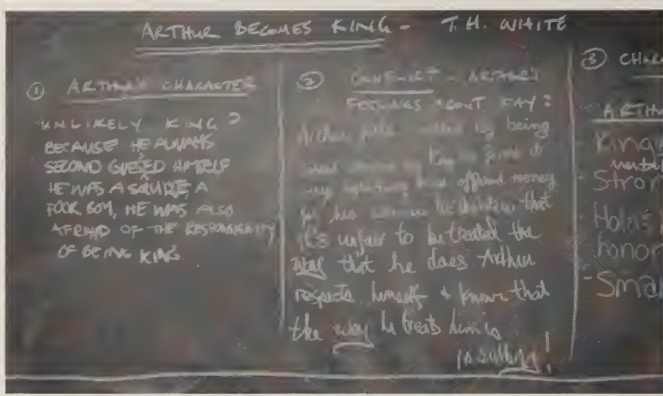 ARTHUR BECOMES KING - T.H. WHITE
① ARTHUR'S CHARACTER
UNLIKELY KING?
BECAUSE HE ALWAYS
SECOND GUESSED HIMSELF
HE WAS A SQUIRE, A
POOR BOY, HE WAS ALSO
AFRAID OF THE RESPONSIBILITY
OF BEING KING
② CONFLICT - ARTHUR'S
FEELINGS ABOUT KAY?
Arthur feels by being
by Kay
offered money
for his that
it's unfair to be treated the
way that he does Arthur
respects himself & knows that
the way he treats him is
insulting!
③ CHAR
ARTHU
King
mental
Stron
Holds
honor
-Smal